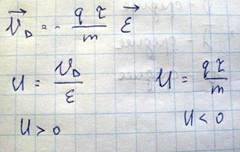 V_D = - q τ / m ε
U = V_D / ε U = q τ / m
U > 0 U < 0